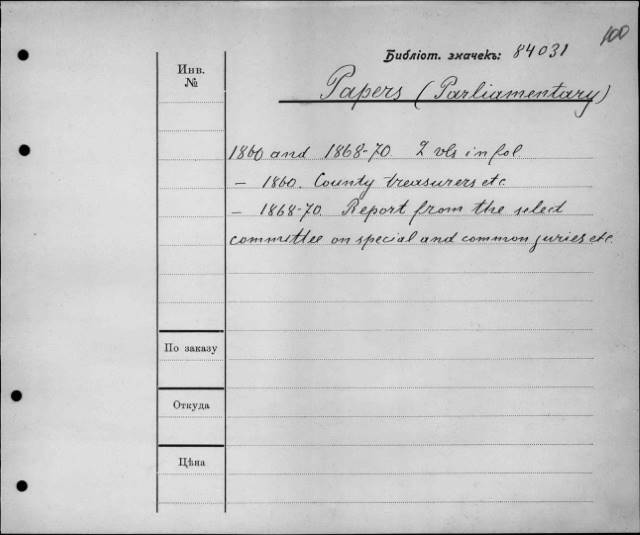 100
Библіот. значекъ: 84031
Инв. №
Papers (Parliamentary)
1860 and 1868-70. 2 vls in fol.
– 1860. County treasurers etc.
– 1868-70. Report from the select
committee on special and common juries etc.
По заказу
Откуда
Цѣна